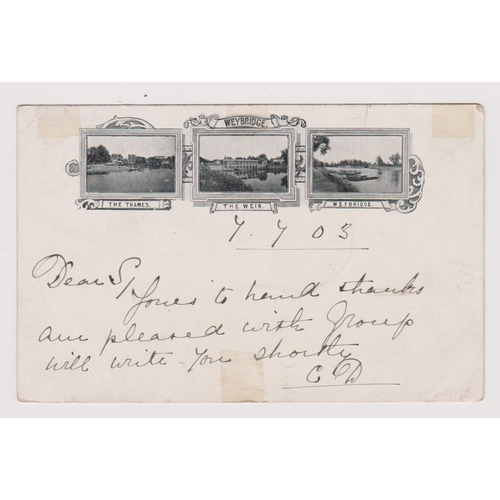 WEYBRIDGE.
THE THAMES. THE WEIR. WEYBRIDGE.
7 7 03
Dear S,
Yours to hand thanks
am pleased with Group
will write you shortly
C D